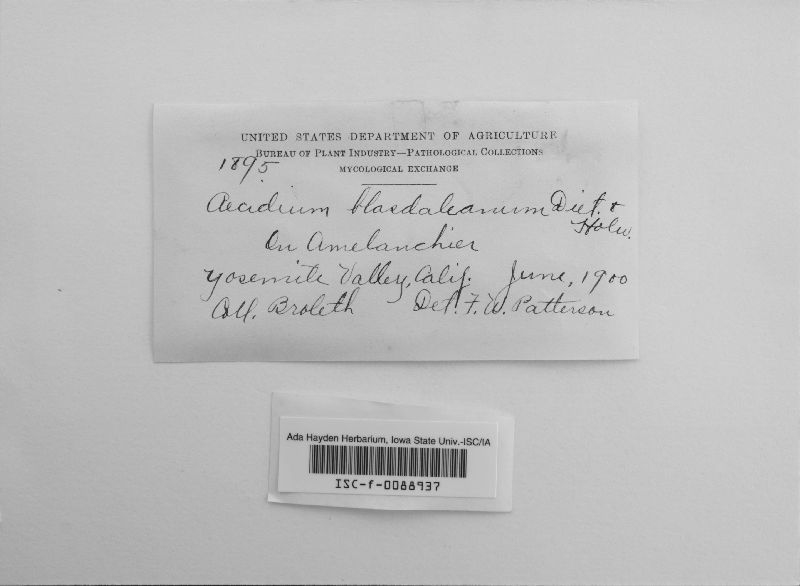 UNITED STATES DEPARTMENT OF AGRICULTURE
BUREAU OF PLANT INDUSTRY—PATHOLOGICAL COLLECTIONS
MYCOLOGICAL EXCHANGE
1895.
Aecidium blasdaleanum Diet. &
Holw.
On Amelanchier
Yosemite Valley, Calif. June, 1900
Coll. Broleth Det. F. W. Patterson
Ada Hayden Herbarium, Iowa State Univ.-ISC/IA
ISC-f-0088937